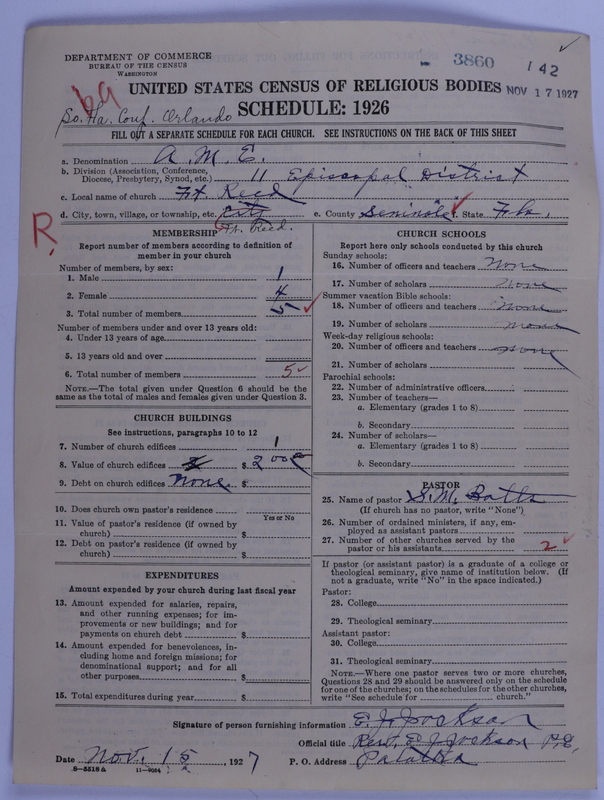 DEPARTMENT OF COMMERCE
BUREAU OF THE CENSUS
WASHINGTON
3860
142
69
UNITED STATES CENSUS OF RELIGIOUS BODIES
NOV 17 1927
So. Fla. Conf. Orlando
SCHEDULE: 1926
FILL OUT A SEPARATE SCHEDULE FOR EACH CHURCH. SEE INSTRUCTIONS ON THE BACK OF THIS SHEET
a. Denomination A. M. E.
b. Division (Association, Conference, Diocese, Presbytery, Synod, etc.) 11 Episcopal District
c. Local name of church Ft. Reed
d. City, town, village, or township, etc. City e. County Seminole f. State Fla.
Ft. Reed.
R.
MEMBERSHIP
Report number of members according to definition of
member in your church
Number of members, by sex:
1. Male 1
2. Female 4
3. Total number of members 5
Number of members under and over 13 years old:
4. Under 13 years of age
5. 13 years old and over
6. Total number of members 5
NOTE.—The total given under Question 6 should be
same as the total of males and females given under Question 3.
CHURCH BUILDINGS
See instructions, paragraphs 10 to 12
7. Number of church edifices 1
8. Value of church edifices $ 2 00
9. Debt on church edifices None $
10. Does church own pastor's residence
Yes or No
11. Value of pastor's residence (if owned by
church) $
12. Debt on pastor's residence (if owned by
church) $
EXPENDITURES
Amount expended by your church during last fiscal year
13. Amount expended for salaries, repairs,
and other running expenses; for im-
provements or new buildings; and for
payments on church debt $
14. Amount expended for benevolences, in-
cluding home and foreign missions; for
denominational support; and for all
other purposes $
15. Total expenditures during year $
CHURCH SCHOOLS
Report here only schools conducted by this church
Sunday schools:
16. Number of officers and teachers None
17. Number of scholars None
Summer vacation Bible schools:
18. Number of officers and teachers None
19. Number of scholars None
Week-day religious schools:
20. Number of officers and teachers None
21. Number of scholars
Parochial schools:
22. Number of administrative officers
23. Number of teachers—
a. Elementary (grades 1 to 8)
b. Secondary
24. Number of scholars—
a. Elementary (grades 1 to 8)
b. Secondary
PASTOR
25. Name of pastor S. M. Batts
(If church has no pastor, write "None")
26. Number of ordained ministers, if any, em-
ployed as assistant pastors
27. Number of other churches served by the
pastor or his assistants 2
If pastor (or assistant pastor) is a graduate of a college or
theological seminary, give name of institution below. (If
not a graduate, write "No" in the space indicated.)
Pastor:
28. College
29. Theological seminary
Assistant pastor:
30. College
31. Theological seminary
NOTE.—Where one pastor serves two or more churches,
Questions 28 and 29 should be answered only on the schedule
for one of the churches; on the schedules for the other churches,
write "See schedule for church."
Signature of person furnishing information E. J. Jackson
Official title Rev. E. J. Jackson P.E.
Date Nov. 15, 1927 P. O. Address Palatka
8—5518 a 11—9054